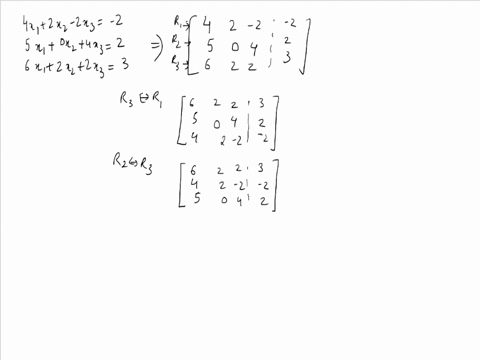 4x₁+2x₂-2x₃=-2
5x₁+0x₂+4x₃=2
6x₁+2x₂+2x₃=3
⇒
R₁→ [ 4 2 -2 ¦ -2
R₂→ 5 0 4 ¦ 2
R₃→ 6 2 2 ¦ 3 ]
R₃↔R₁
[ 6 2 2 ¦ 3
5 0 4 | 2
4 2 -2 | -2 ]
R₂↔R₃
[ 6 2 2 ¦ 3
4 2 -2 ¦ -2
5 0 4 ¦ 2 ]